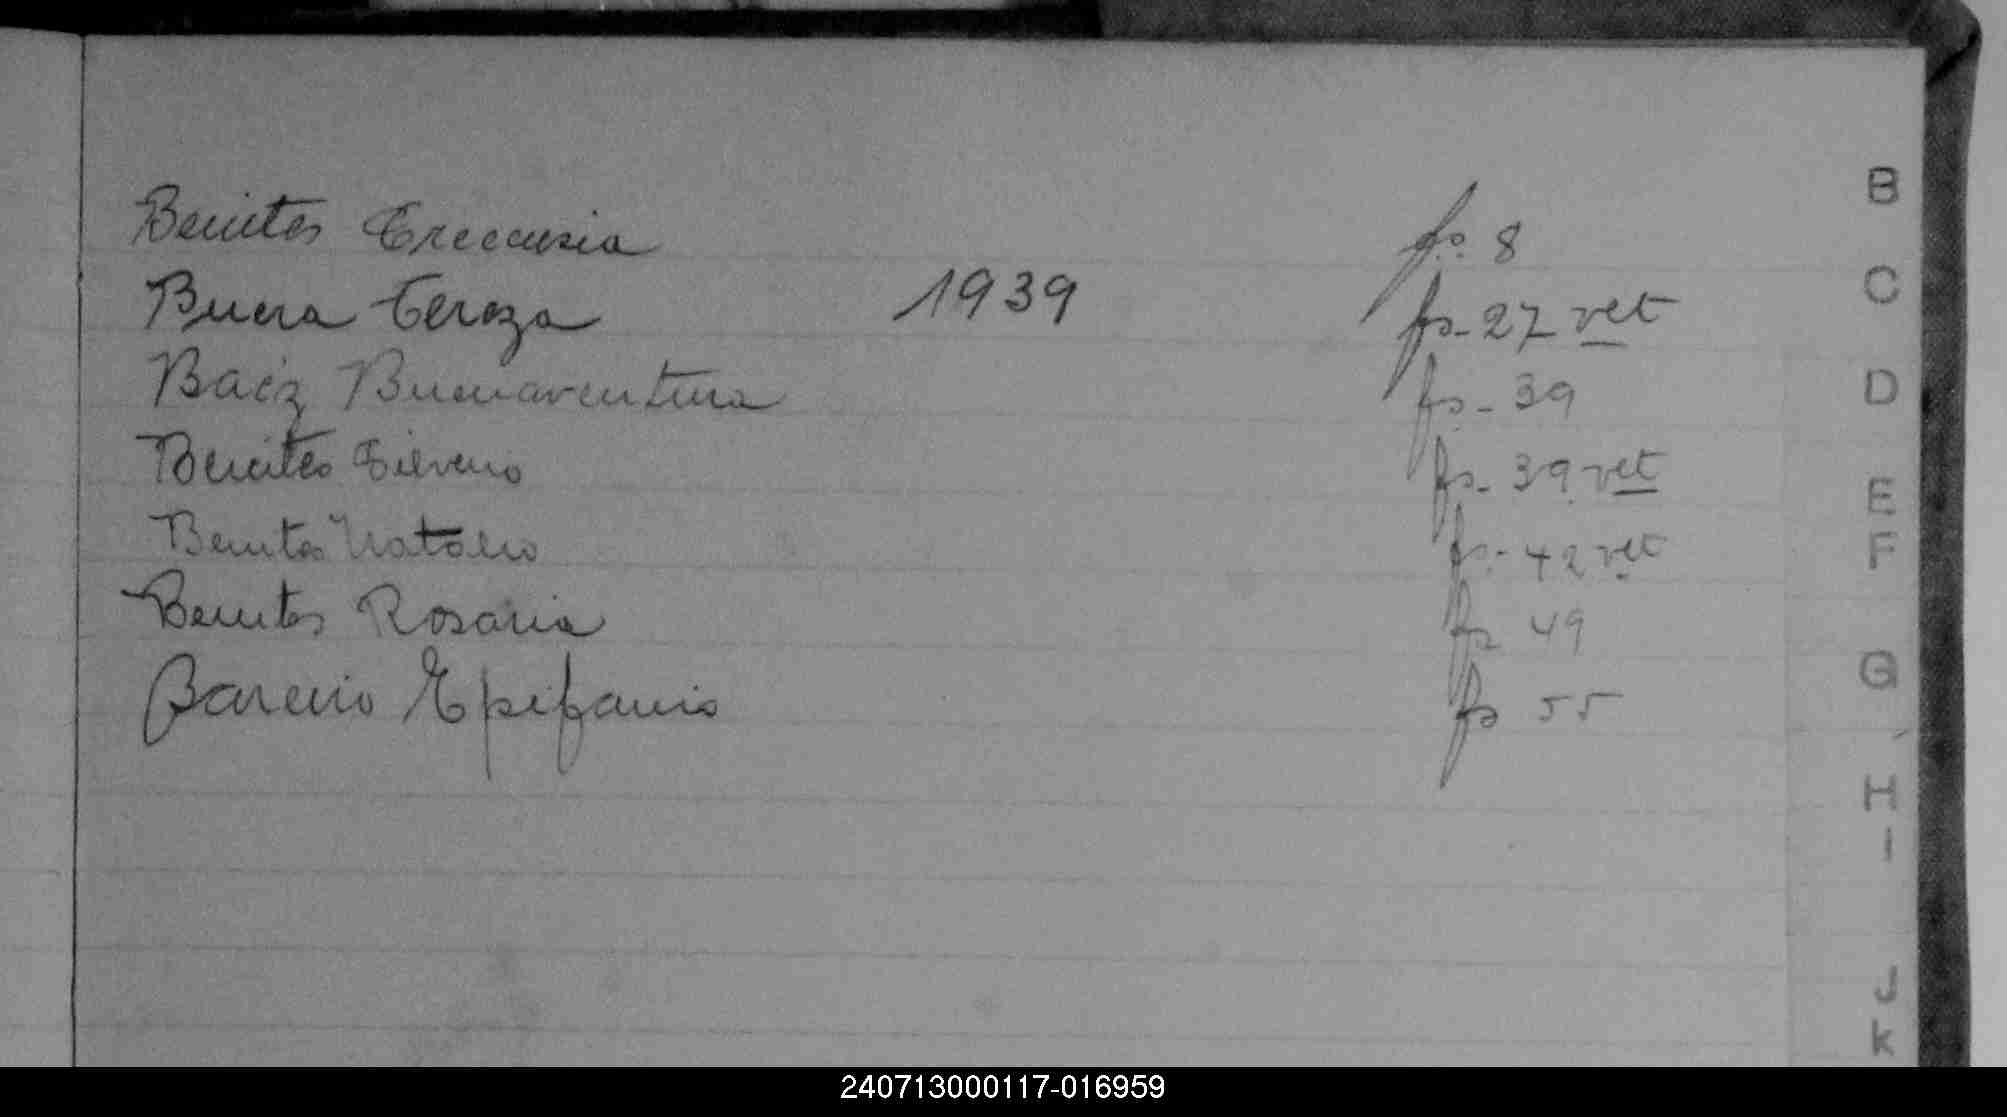 Benites fs. 8
Buera Tereza 1939 fs - 27 vet
Baéz Buenaventura fs - 39
Benites Silverio fs - 39 vet
Benites Natalio fs - 42 vet
Benites Rosaria fs 49
Bareiro Epifanio fs 55
B
C
D
E
F
G
H
I
J
K
240713000117-016959